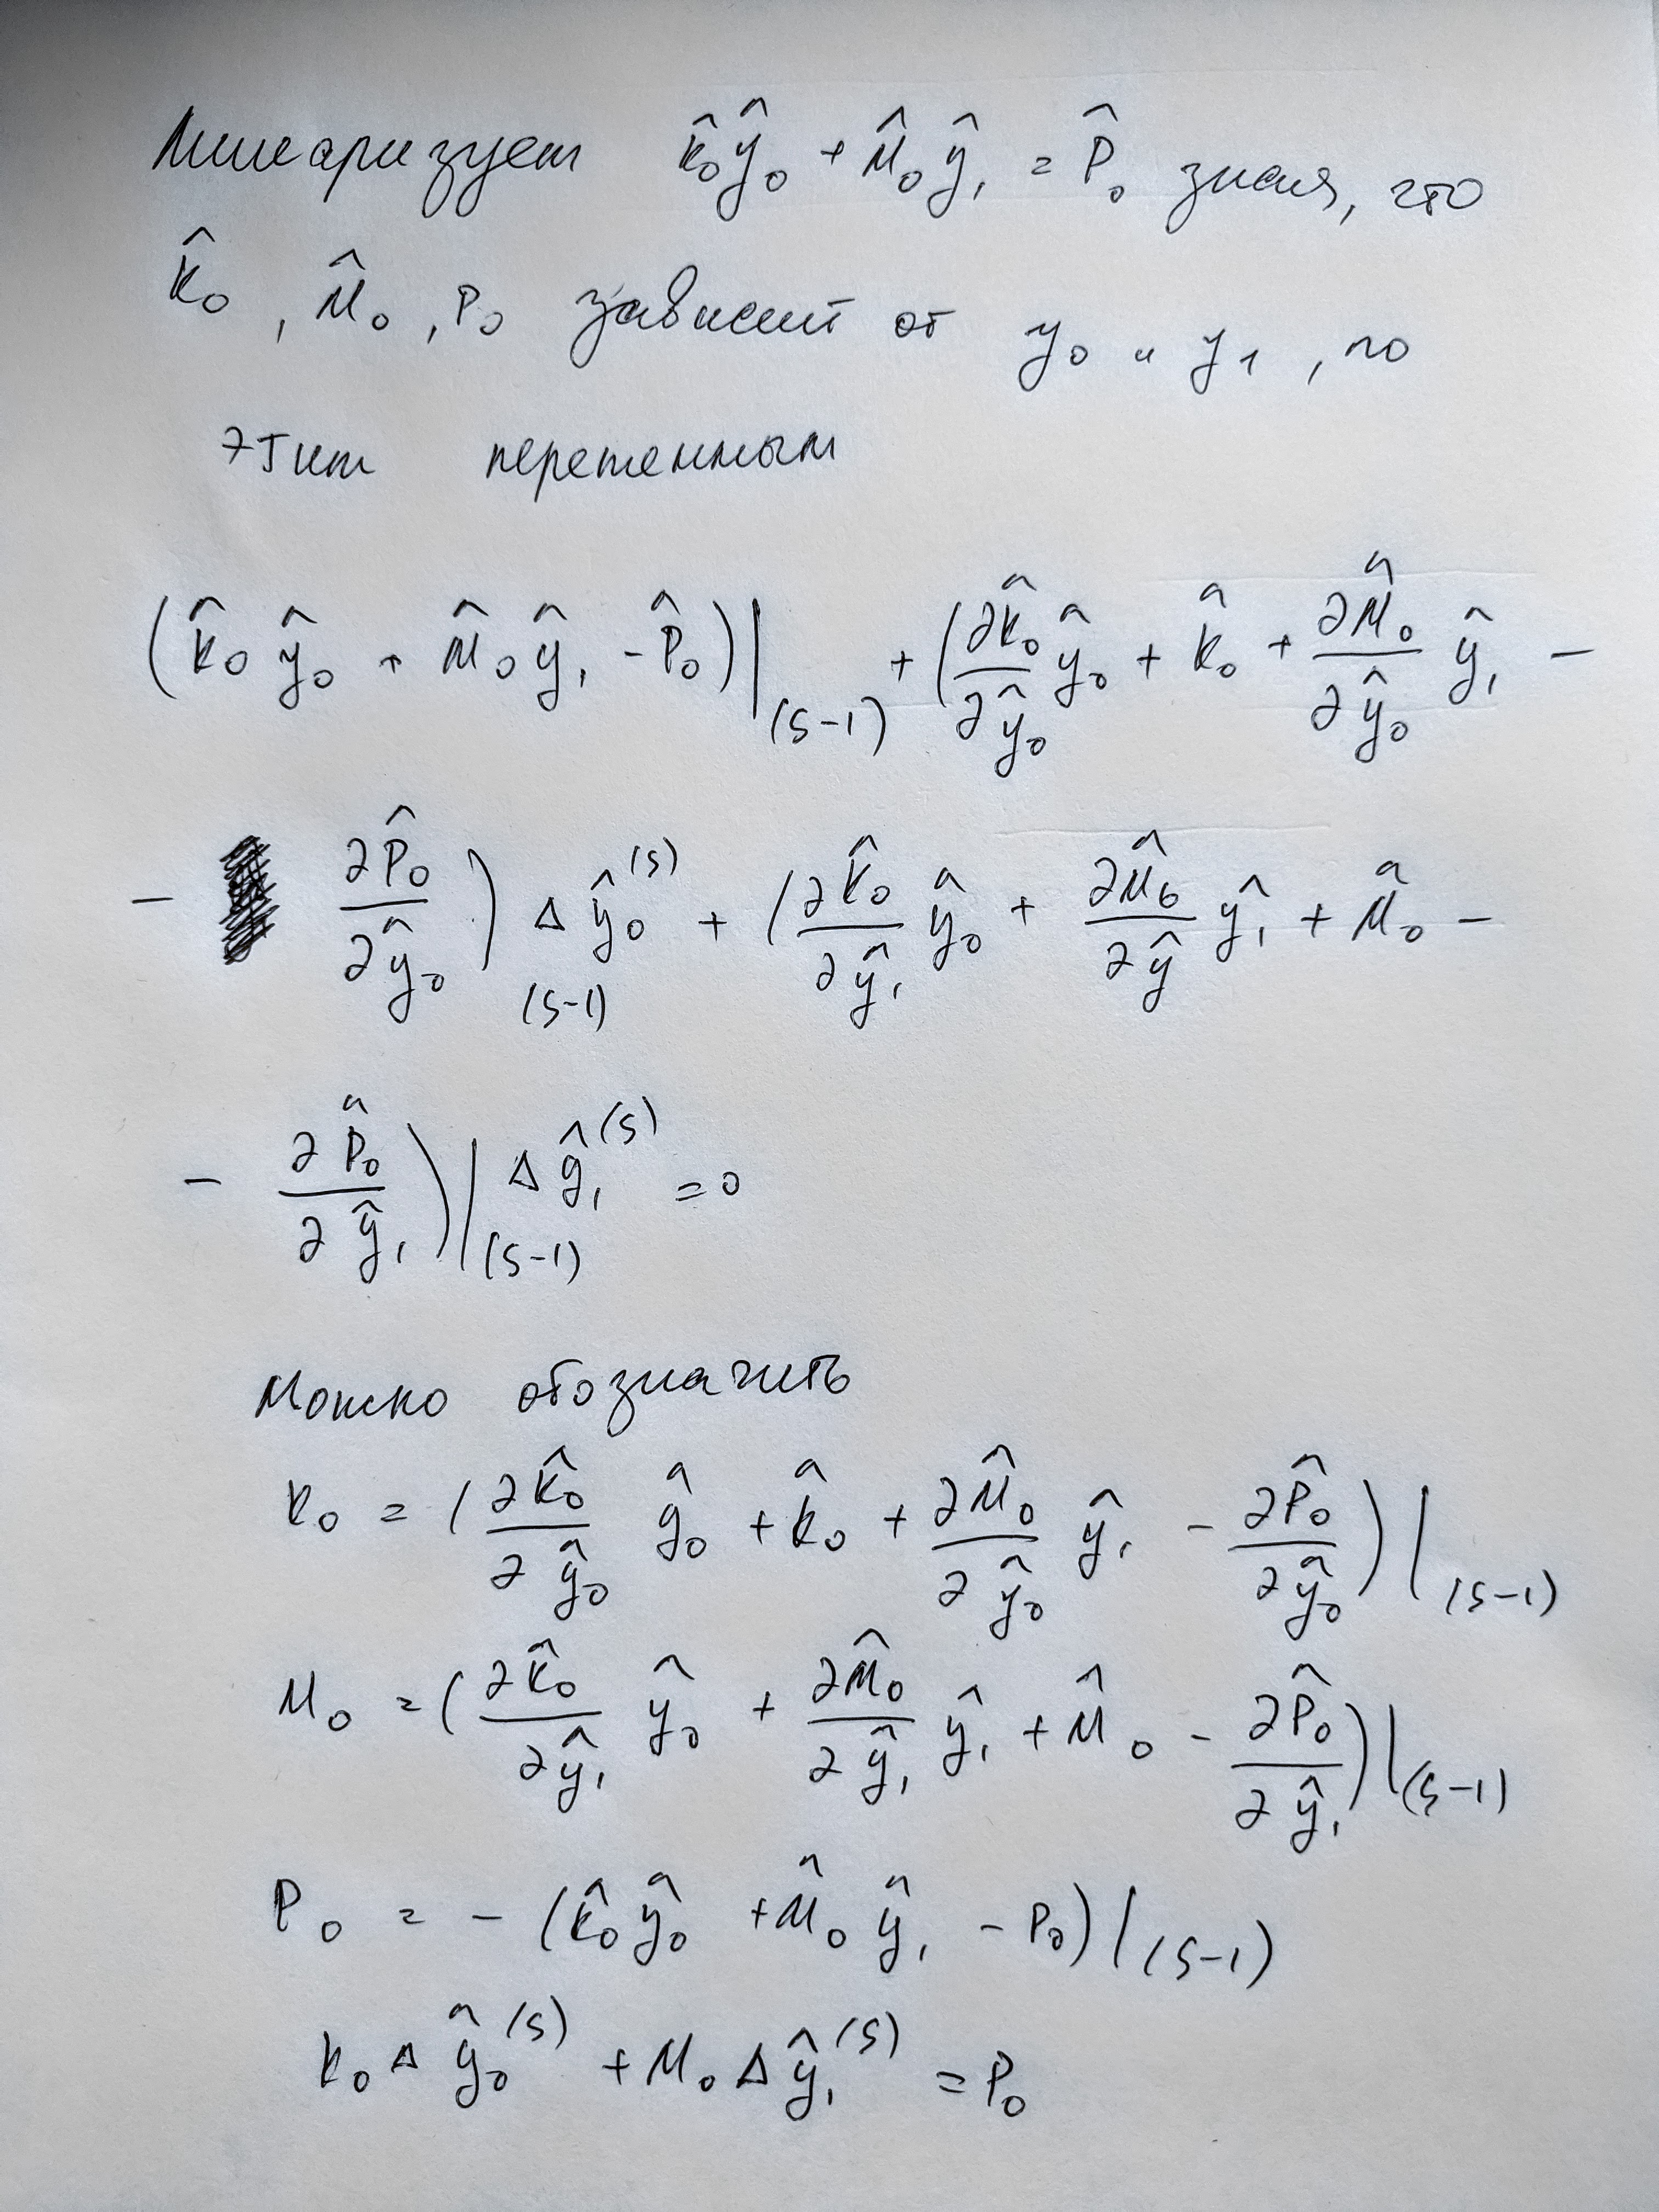 Линеаризуем K̂₀ŷ₀ + M̂₀ŷ₁ = P̂₀ зная, что
K̂₀, M̂₀, P₀ зависит от y₀ и y₁, по
этим переменным
(K̂₀ŷ₀ + M̂₀ŷ₁ - P̂₀)|₍ₛ₋₁₎ + (∂K̂₀/∂ŷ₀ ŷ₀ + K̂₀ + ∂M̂₀/∂ŷ₀ ŷ₁ -
- ∂P̂₀/∂ŷ₀)₍ₛ₋₁₎ Δŷ₀⁽ˢ⁾ + (∂K̂₀/∂ŷ₁ ŷ₀ + ∂M̂₀/∂ŷ ŷ₁ + M̂₀ -
- ∂P̂₀/∂ŷ₁)|₍ₛ₋₁₎ Δŷ₁⁽ˢ⁾ = 0
Можно обозначить
K₀ = (∂K̂₀/∂ŷ₀ ŷ₀ + K̂₀ + ∂M̂₀/∂ŷ₀ ŷ₁ - ∂P̂₀/∂ŷ₀)|₍ₛ₋₁₎
M₀ = (∂K̂₀/∂ŷ₁ ŷ₀ + ∂M̂₀/∂ŷ₁ ŷ₁ + M̂₀ - ∂P̂₀/∂ŷ₁)|₍ₛ₋₁₎
P₀ = - (K̂₀ŷ₀ + M̂₀ŷ₁ - P₀)|₍ₛ₋₁₎
K₀Δŷ₀⁽ˢ⁾ + M₀Δŷ₁⁽ˢ⁾ = P₀